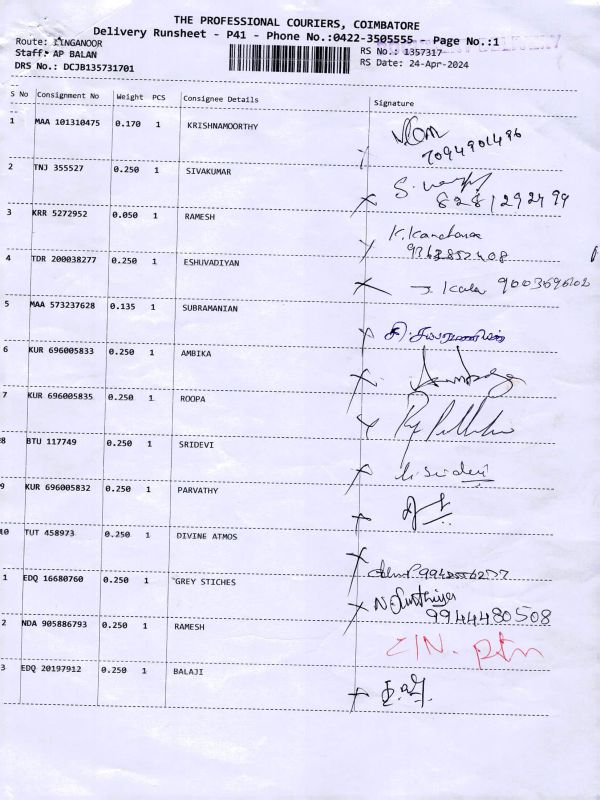 THE PROFESSIONAL COURIERS, COIMBATORE
Delivery Runsheet - P41 - Phone No.:0422-3505555 - Page No.:1
Route: IINGANOOR
RS No.: 1357317
Staff: AP BALAN
RS Date: 24-Apr-2024
DRS No.: DCJB135731701
S No Consignment No Weight PCS Consignee Details Signature
1 MAA 101310475 0.170 1 KRISHNAMOORTHY
7094901496
2 TNJ 355527 0.250 1 SIVAKUMAR
8281292499
3 KRR 5272952 0.050 1 RAMESH K.Kanchana
9363852408
4 TDR 200038277 0.250 1 ESHUVADIYAN J. Kala
5 MAA 573237628 0.135 1 SUBRAMANIAN
6 KUR 696005833 0.250 1 AMBIKA
7 KUR 696005835 0.250 1 ROOPA
8 BTU 117749 0.250 1 SRIDEVI
9 KUR 696005832 0.250 1 PARVATHY
10 TUT 458973 0.250 1 DIVINE ATMOS
1 EDQ 16680760 0.250 1 GREY STICHES
9944480508
2 NDA 905886793 0.250 1 RAMESH
3 EDQ 20197912 0.250 1 BALAJI